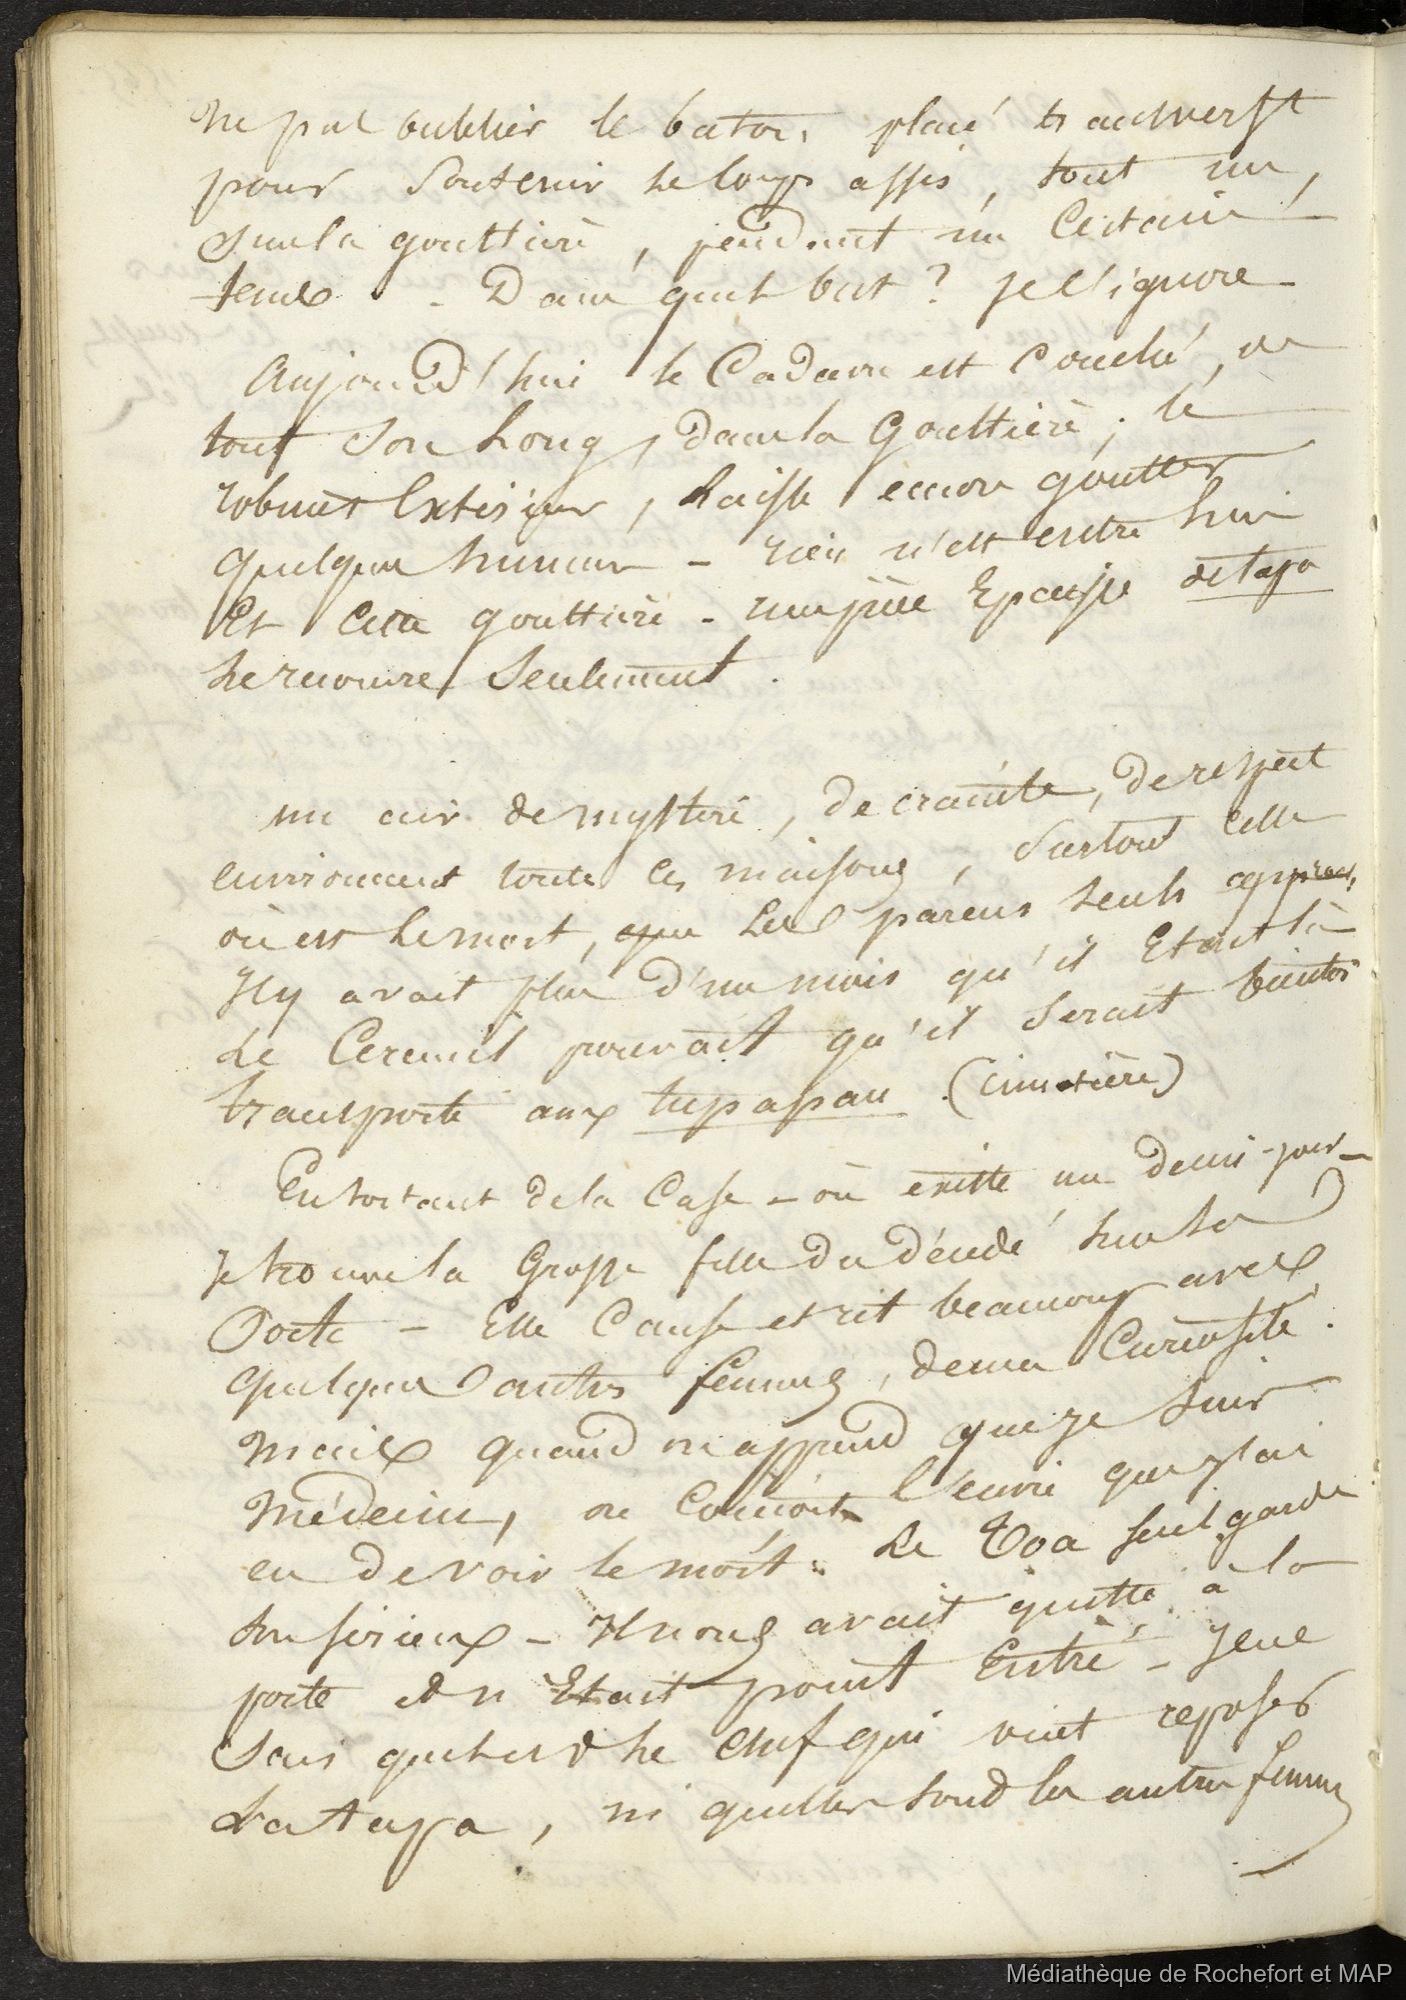 Ne pas oublier le baton, placé transverst
pour soutenir le corps assis, tout nu,
sur la gouttière, pendant un certain
tems. - Dans quel but? je l'ignore -
Aujourd'hui le Cadavre est couché, de
tout son long, dans la Gouttière; le
robinet Extérieur, laisse encore goutter
quelques humeurs - rien n'est entre lui
Et cette gouttière - une pièce Epaisse de tapa
le recouvre seulement.
un air de mystère, de crainte, de respect
environnent toutes ces maisons, surtout celle
où est le mort, que les parens seuls
Il y avait plus d'un mois qu'il Etait là
Le Cercueil prouvait qu'il serait bientot
transporté aux tupapau (cimetière)
En sortant de la Case - où existe un demi-jour -
Je trouve la Grosse fille du décédé sur la
Porte - Elle Cause et rit beaucoup avec
quelques autres femmes, de ma Curiosité.
Mais quand on apprend que je suis
Médecin, on Concoit l'envie que j'ai
eu de voir le mort. Le Toa seul garde
son sérieux - Il nous avait quitté à la
porte et n'Etait point Entré - Je ne
sais quel est le chef qui vient reposer
La tapa, ni quelles sont les autres femmes
Médiathèque de Rochefort et MAP